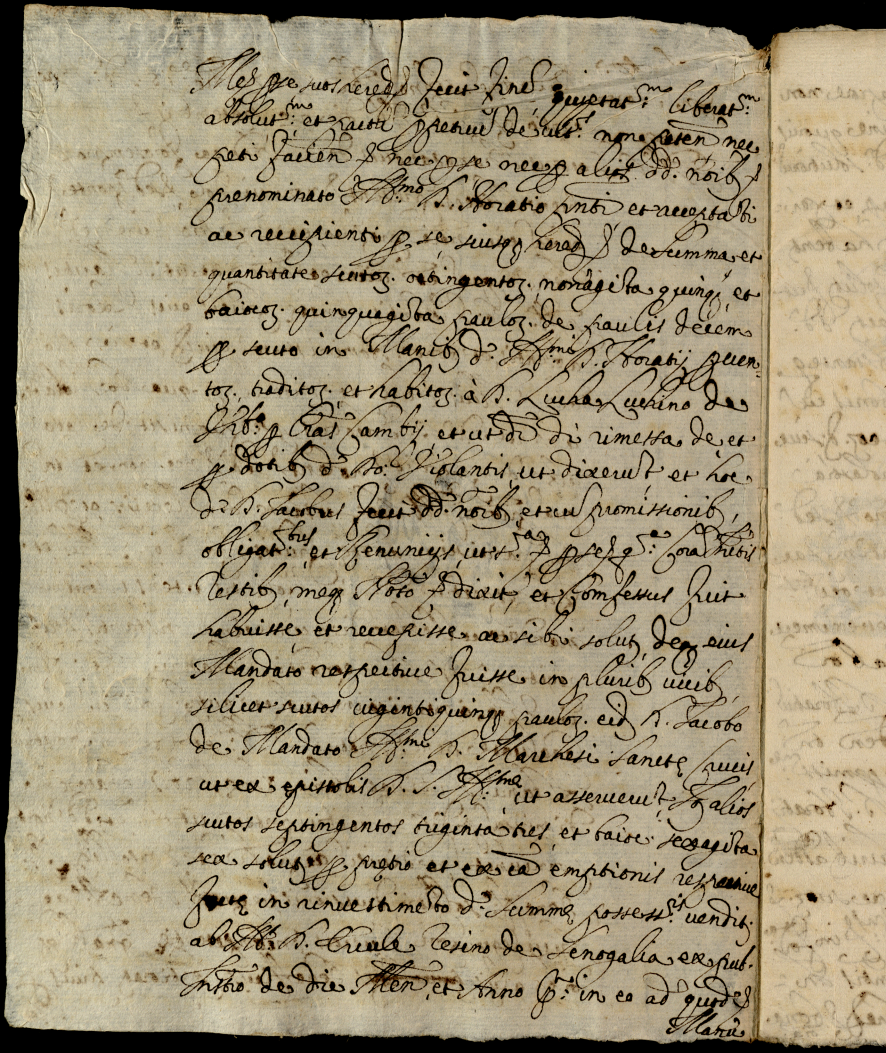 suos hered fecit fine quietat.m liberat.m
absolut.m et pactu de ult. non peten nec
peti facien nec p se nec p alios dd. noib
prenominato Ill.mo D. Horatio pnti et acceptati
ac recipienti p se suisq hered de summa et
quantitate scutoz. octingentoz. nonagita quinq et
baiocoz. quinquagita pauloz. de paulis decem
p scuto in Manib d. Ill.mi D. Horatij perven-
toz. traditoz. et habitoz. à D. Lucha Luchino de
Urb. p lras Cambij et ut di di rimessa de et
p dotib d. Do. Violantis ut dixerut et hoc
d. D. Jacobus fecit dd. noib et cu promissionib,
obligat.bus et renuncijs ut s.a p se q.a cora
testib meq Noto dixit, et confessus fuit
habuisse et recepisse ac sibi solut deq eius
Mandato respective fuisse in plurib vicib
silicet scutos vigintiquinq pauloz. eid D. Jacobo
de Mandato Ill.mi D. Marchesi Sancte Crucis
ut ex epistolis D. S. Ill.me ut asseruerut. alios
scutos septingentos triginta tres, et baioc. sexagita
sex solut p pretio et ex ca emptionis respective
fcte in rinvestimeto d. Summe possess.is vendit.
ab Ill. D. Ercule Resino de Senogalia ex pub.
Instro. de die Men, et Anno in eo ad quod
Manu